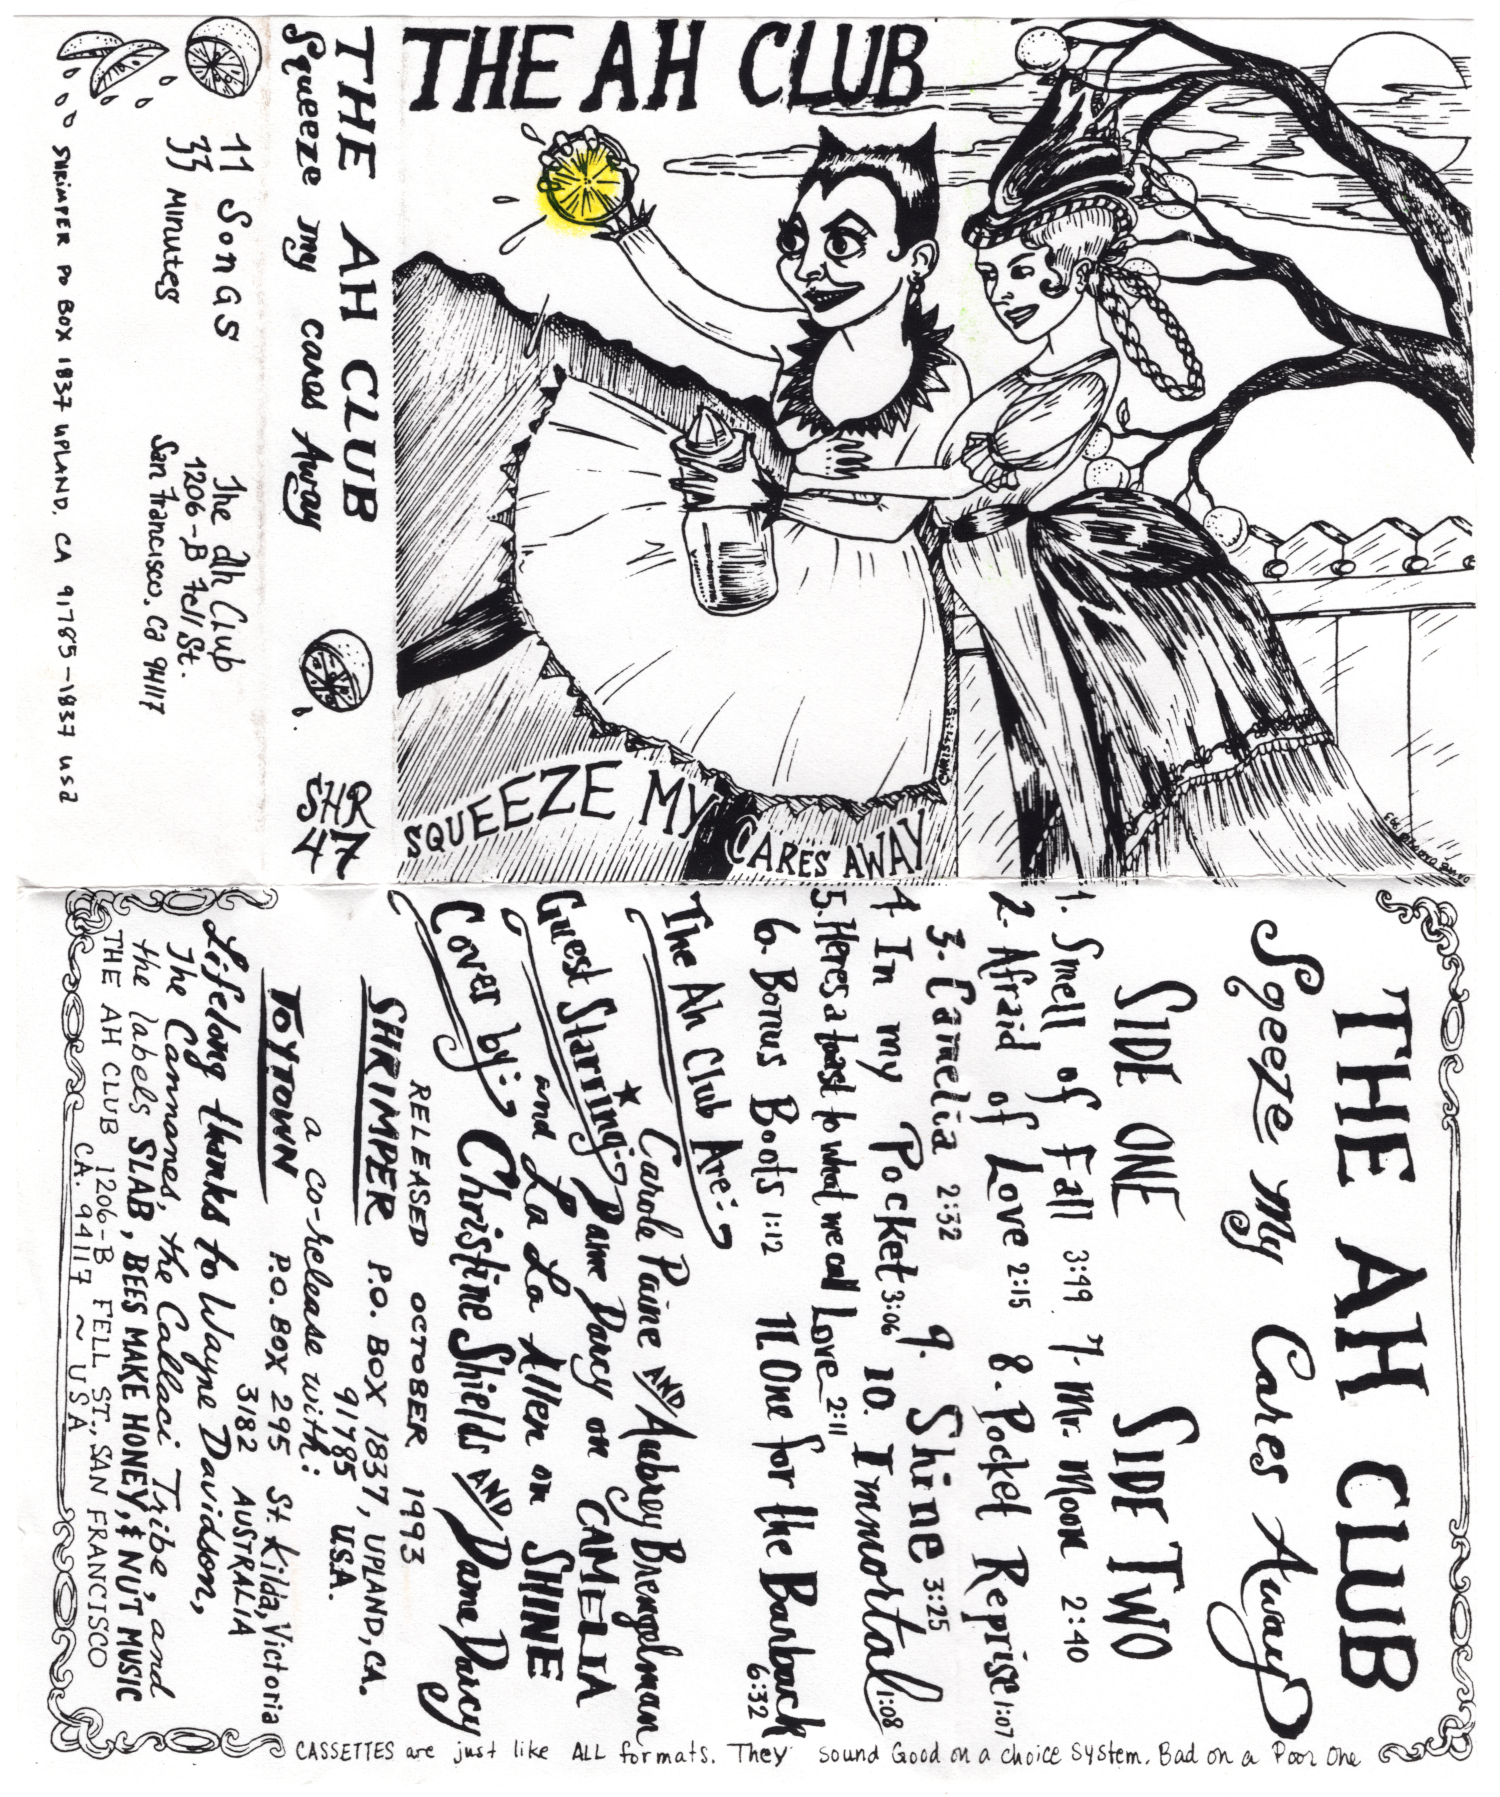 THE AH CLUB
SQUEEZE MY CARES AWAY
CHRISTINE S.
THE AH CLUB
Squeeze my cares Away
SHR
47
11 SONGS
33 MINUTES
The Ah Club
1206-B Fell St.
San Francisco, Ca 94117
SHRIMPER PO BOX 1837 UPLAND, CA 91785-1837 USA
THE AH CLUB
Sqeeze My Cares Away
SIDE ONE
SIDE TWO
1. Smell of Fall 3:49
7. Mr. Moon 2:40
2. Afraid of Love 2:15
8. Pocket Reprise 1:07
3. Camelia 2:32
9. Shine 3:25
4. In my Pocket 3:06
10. Immortal 1:08
5. Heres a toast to what we call Love 2:11
6. Bonus Boots 1:12
11. One for the Barback 6:32
The Ah Club Are:
Carole Paine AND Aubrey Brengelman
Guest Starring:
Dame Darcy on CAMELIA
and La La Allen on SHINE
Cover by:
Christine Shields AND Dame Darcy
RELEASED OCTOBER 1993
SHRIMPER P.O. BOX 1837, UPLAND, CA.
91785 U.S.A.
a co-release with:
TOYTOWN P.O. BOX 295 St. Kilda, Victoria
3182 AUSTRALIA
Lifelong thanks to Wayne Davidson,
The Cannanes, the Callaci Tribe, and
the labels SLAB, BEES MAKE HONEY, & NUT MUSIC
THE AH CLUB 1206-B FELL ST., SAN FRANCISCO
CA. 94117 ~ USA
CASSETTES are just like ALL formats. They sound Good on a choice System. Bad on a Poor One